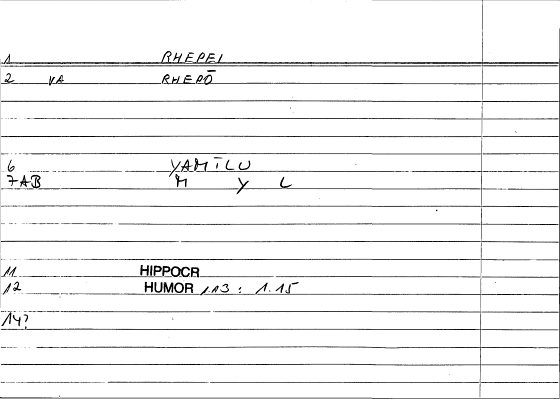 1 RHEPEI
2 VA RHEPŌ
6 YAMĪLU
7AB M Y L
11 HIPPOCR
12 HUMOR ,13 : 1.15
14?